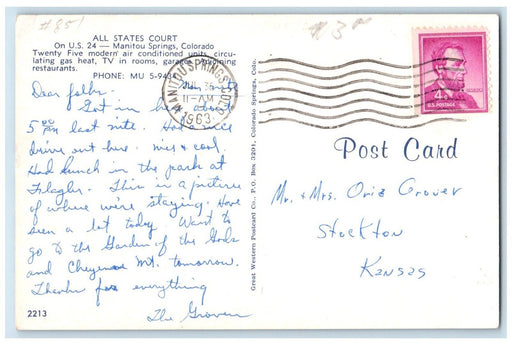 #851
ALL STATES COURT
On U.S. 24 — Manitou Springs, Colorado
Twenty Five modern air conditioned units, circu-
lating gas heat, TV in rooms, garages. Adjoining
restaurants.
PHONE: MU 5-943
MANITOU SPRINGS COLO.
11-AM
1963
4¢
U.S. POSTAGE
Dear folks.
Got in here about
5 00 PM last nite. Had a nice
drive out here. nice & cool.
Had lunch in the park at
Flagler. This is a picture
of where we're staying. Have
seen a lot today. Want to
go to the Garden of the Gods
and Cheyenne Mt. tomorrow.
Thanks for everything
The Grovers
2213
Great Western Postcard Co., P.O. Box 3291, Colorado Springs, Colo.
Post Card
Mr. & Mrs. Oris Grover
Stockton
Kansas